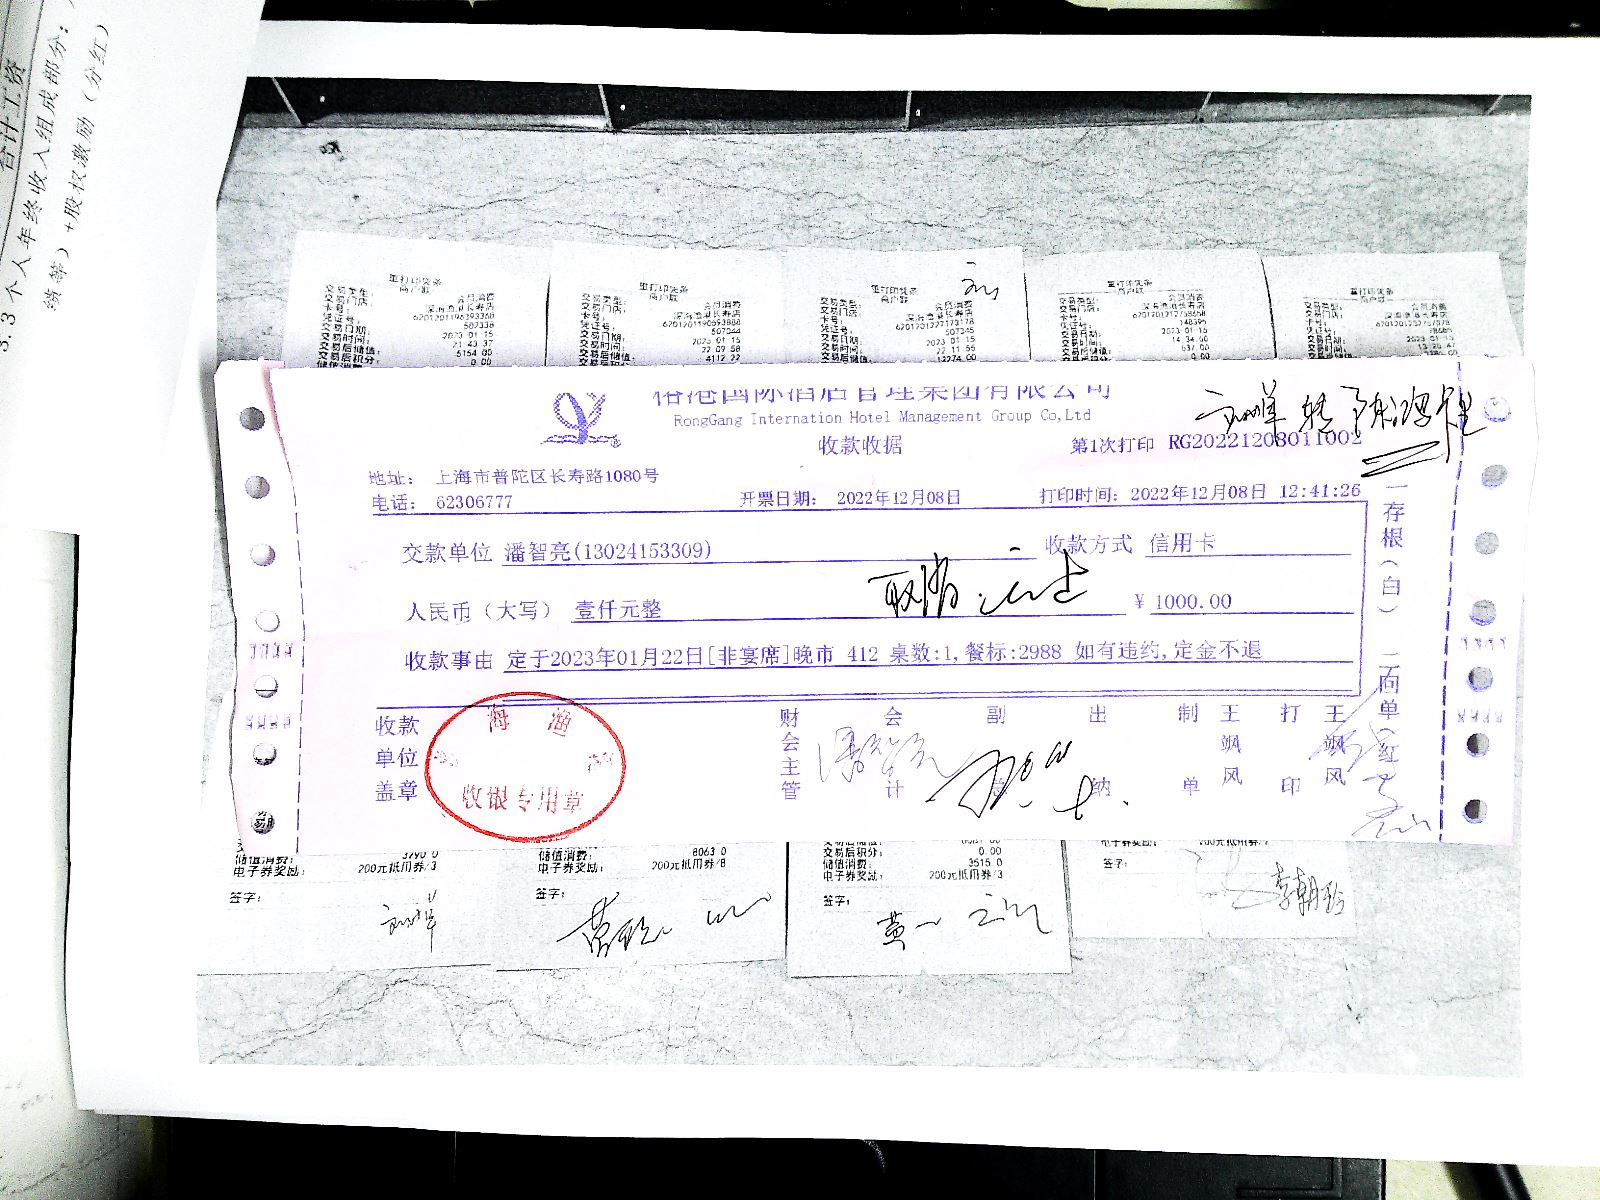 合计工资
3.3 个人年终收入组成部分：
绩等）+股权激励（分红）
重打印凭条
商户联
交易类型： 会员消费
交易门店： 深海渔港长寿店
卡号： 6201201196393360
凭证号： 507338
交易日期： 2023 01 15
交易时间： 21 43 37
交易后储值： 5154 00
0 00
重打印凭条
商户联
交易类型： 会员消费
交易门店： 深海渔港长寿店
卡号： 6201201190593888
凭证号： 507344
交易日期： 2023 01 15
交易时间： 22 09 58
交易后储值： 4112 22
重打印凭条
商户联
交易类型： 会员消费
交易门店： 深海渔港长寿店
卡号： 6201201227173178
凭证号： 507345
交易日期： 2023 01 15
交易时间： 22 11 55
交易后储值： 12274 00
重打印凭条
商户联
交易类型： 会员消费
交易门店： 深海渔港长寿店
卡号： 6201201217758658
凭证号： 148395
交易日期： 2023 01 15
交易时间： 14 34 00
交易后储值： 637 00
0 00
重打印凭条
商户联
交易类型： 会员消费
交易门店： 深海渔港长寿店
卡号：
凭证号：
交易日期： 2023 01 15
交易时间：
港国际酒店管理集团有限公司
RongGang Internation Hotel Management Group Co,Ltd
收款收据
第1次打印 RG20221208011002
地址： 上海市普陀区长寿路1080号
电话： 62306777
开票日期： 2022年12月08日
打印时间：2022年12月08日 12:41:26
交款单位 潘智亮(13024153309)
收款方式 信用卡
人民币（大写） 壹仟元整
取消
￥ 1000.00
收款事由 定于2023年01月22日[非宴席]晚市 412 桌数:1,餐标:2988 如有违约,定金不退
一存根(白) 二回单(红)
收款单位盖章
海渔
收银专用章
财会主管
会计
副总
出纳
制单
王飒风
打印
王飒风
储值消费： 3790 0
电子券奖励： 200元抵用券/3
签字：
储值消费： 8063 0
电子券奖励： 200元抵用券/8
签字：
交易后积分： 0.00
储值消费： 3515 0
电子券奖励： 200元抵用券/3
签字：
电子券奖励：
签字：
李朝